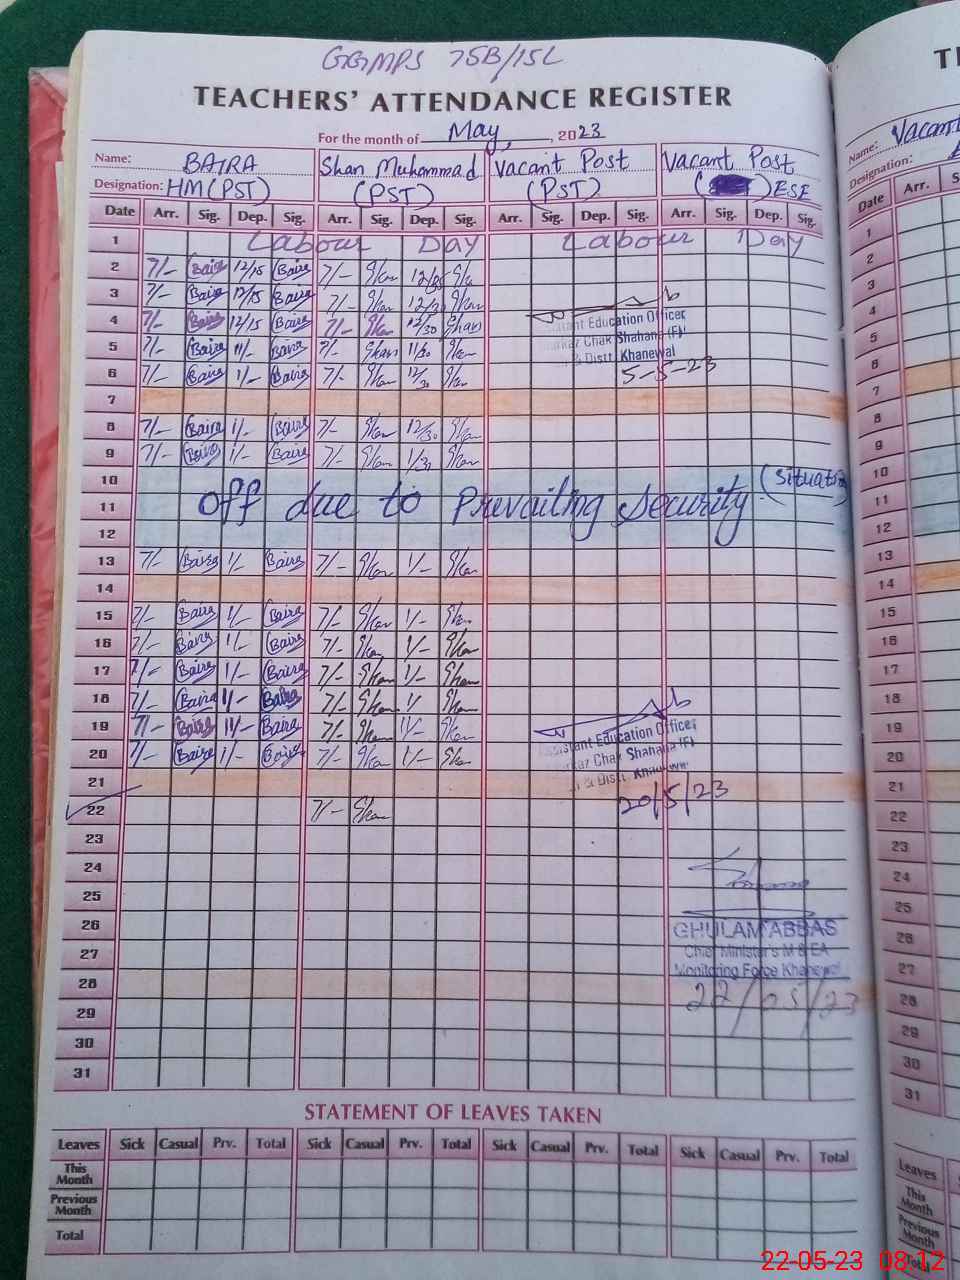 GGMPS 75B/15L
TEACHERS' ATTENDANCE REGISTER
For the month of May, 2023
Name: BAIRA Shan Muhammad Vacant Post Vacant Post
Designation: HM (PST) (PST) (PST) ( ) ESE
Date Arr. Sig. Dep. Sig. Arr. Sig. Dep. Sig. Arr. Sig. Dep. Sig. Arr. Sig. Dep. Sig.
1 Labour Day Labour Day
2 7/- Baira 12/15 Baira 7/- Shan 12/30 Sha
3 7/- Baira 12/15 Baira 7/- Shan 12/30 Shan
4 7/- Baira 12/15 Baira 7/- Shan 12/30 Shan
Assistant Education Officer
5 7/- Baira 11/- Baira 7/- Shan 11/30 Shan
Markaz Chak Shahana (F)
& Distt. Khanewal
6 7/- Baira 1/- Baira 7/- Shan 12/30 Shan
5-5-23
7
8 7/- Baira 1/- Baira 7/- Shan 12/30 Shan
9 7/- Baira 1/- Baira 7/- Shan 1/30 Shan
10
11 off due to Prevailing Security (Situation
12
13 7/- Baira 1/- Baira 7/- Shan 1/- Shan
14
15 7/- Baira 1/- Baira 7/- Shan 1/- Shan
16 7/- Baira 1/- Baira 7/- Shan 1/- Shan
17 7/- Baira 1/- Baira 7/- Shan 1/- Shan
18 7/- Baira 1/- Baira 7/- Shan 1/ Shan
19 7/- Baira 11/- Baira 7/- Shan 11/- Shan
Assistant Education Officer
20 7/- Baira 1/- Baira 7/- Shan 1/- Shan
Markaz Chak Shahana (F)
& Distt. Khanewal
21
20/5/23
22 7/- Shan
23
24
25
26
GHULAM ABBAS
27
Chief Minister's M & EA
Monitoring Force Khanewal
28
22/05/23
29
30
31
STATEMENT OF LEAVES TAKEN
Leaves Sick Casual Prv. Total Sick Casual Prv. Total Sick Casual Prv. Total Sick Casual Prv. Total
This Month
Previous Month
Total
Vacant
Name:
Designation:
Date Arr.
1
2
3
4
5
6
7
8
9
10
11
12
13
14
15
16
17
18
19
20
21
22
23
24
25
26
27
28
29
30
31
Leaves
This Month
Previous Month
Total
22-05-23 08:12